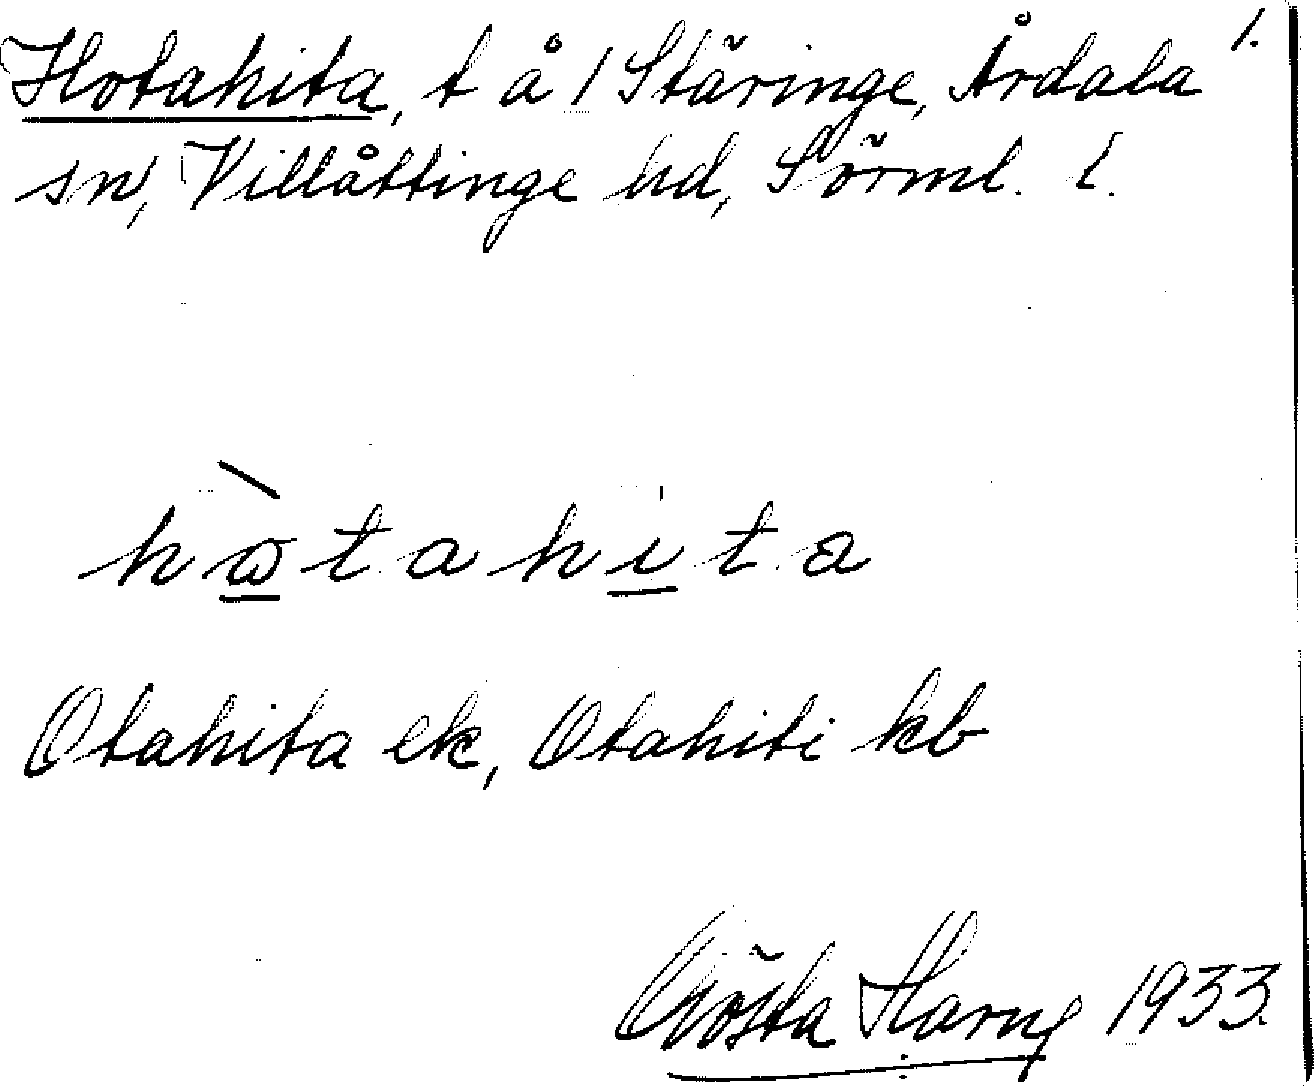 Hotahita, t å 1 Stäringe, Årdala 1.
sn, Villåttinge hd, Sörml. l.
hὼtahita
Otahita ek, Otahiti kb
Gösta Harng 1933.